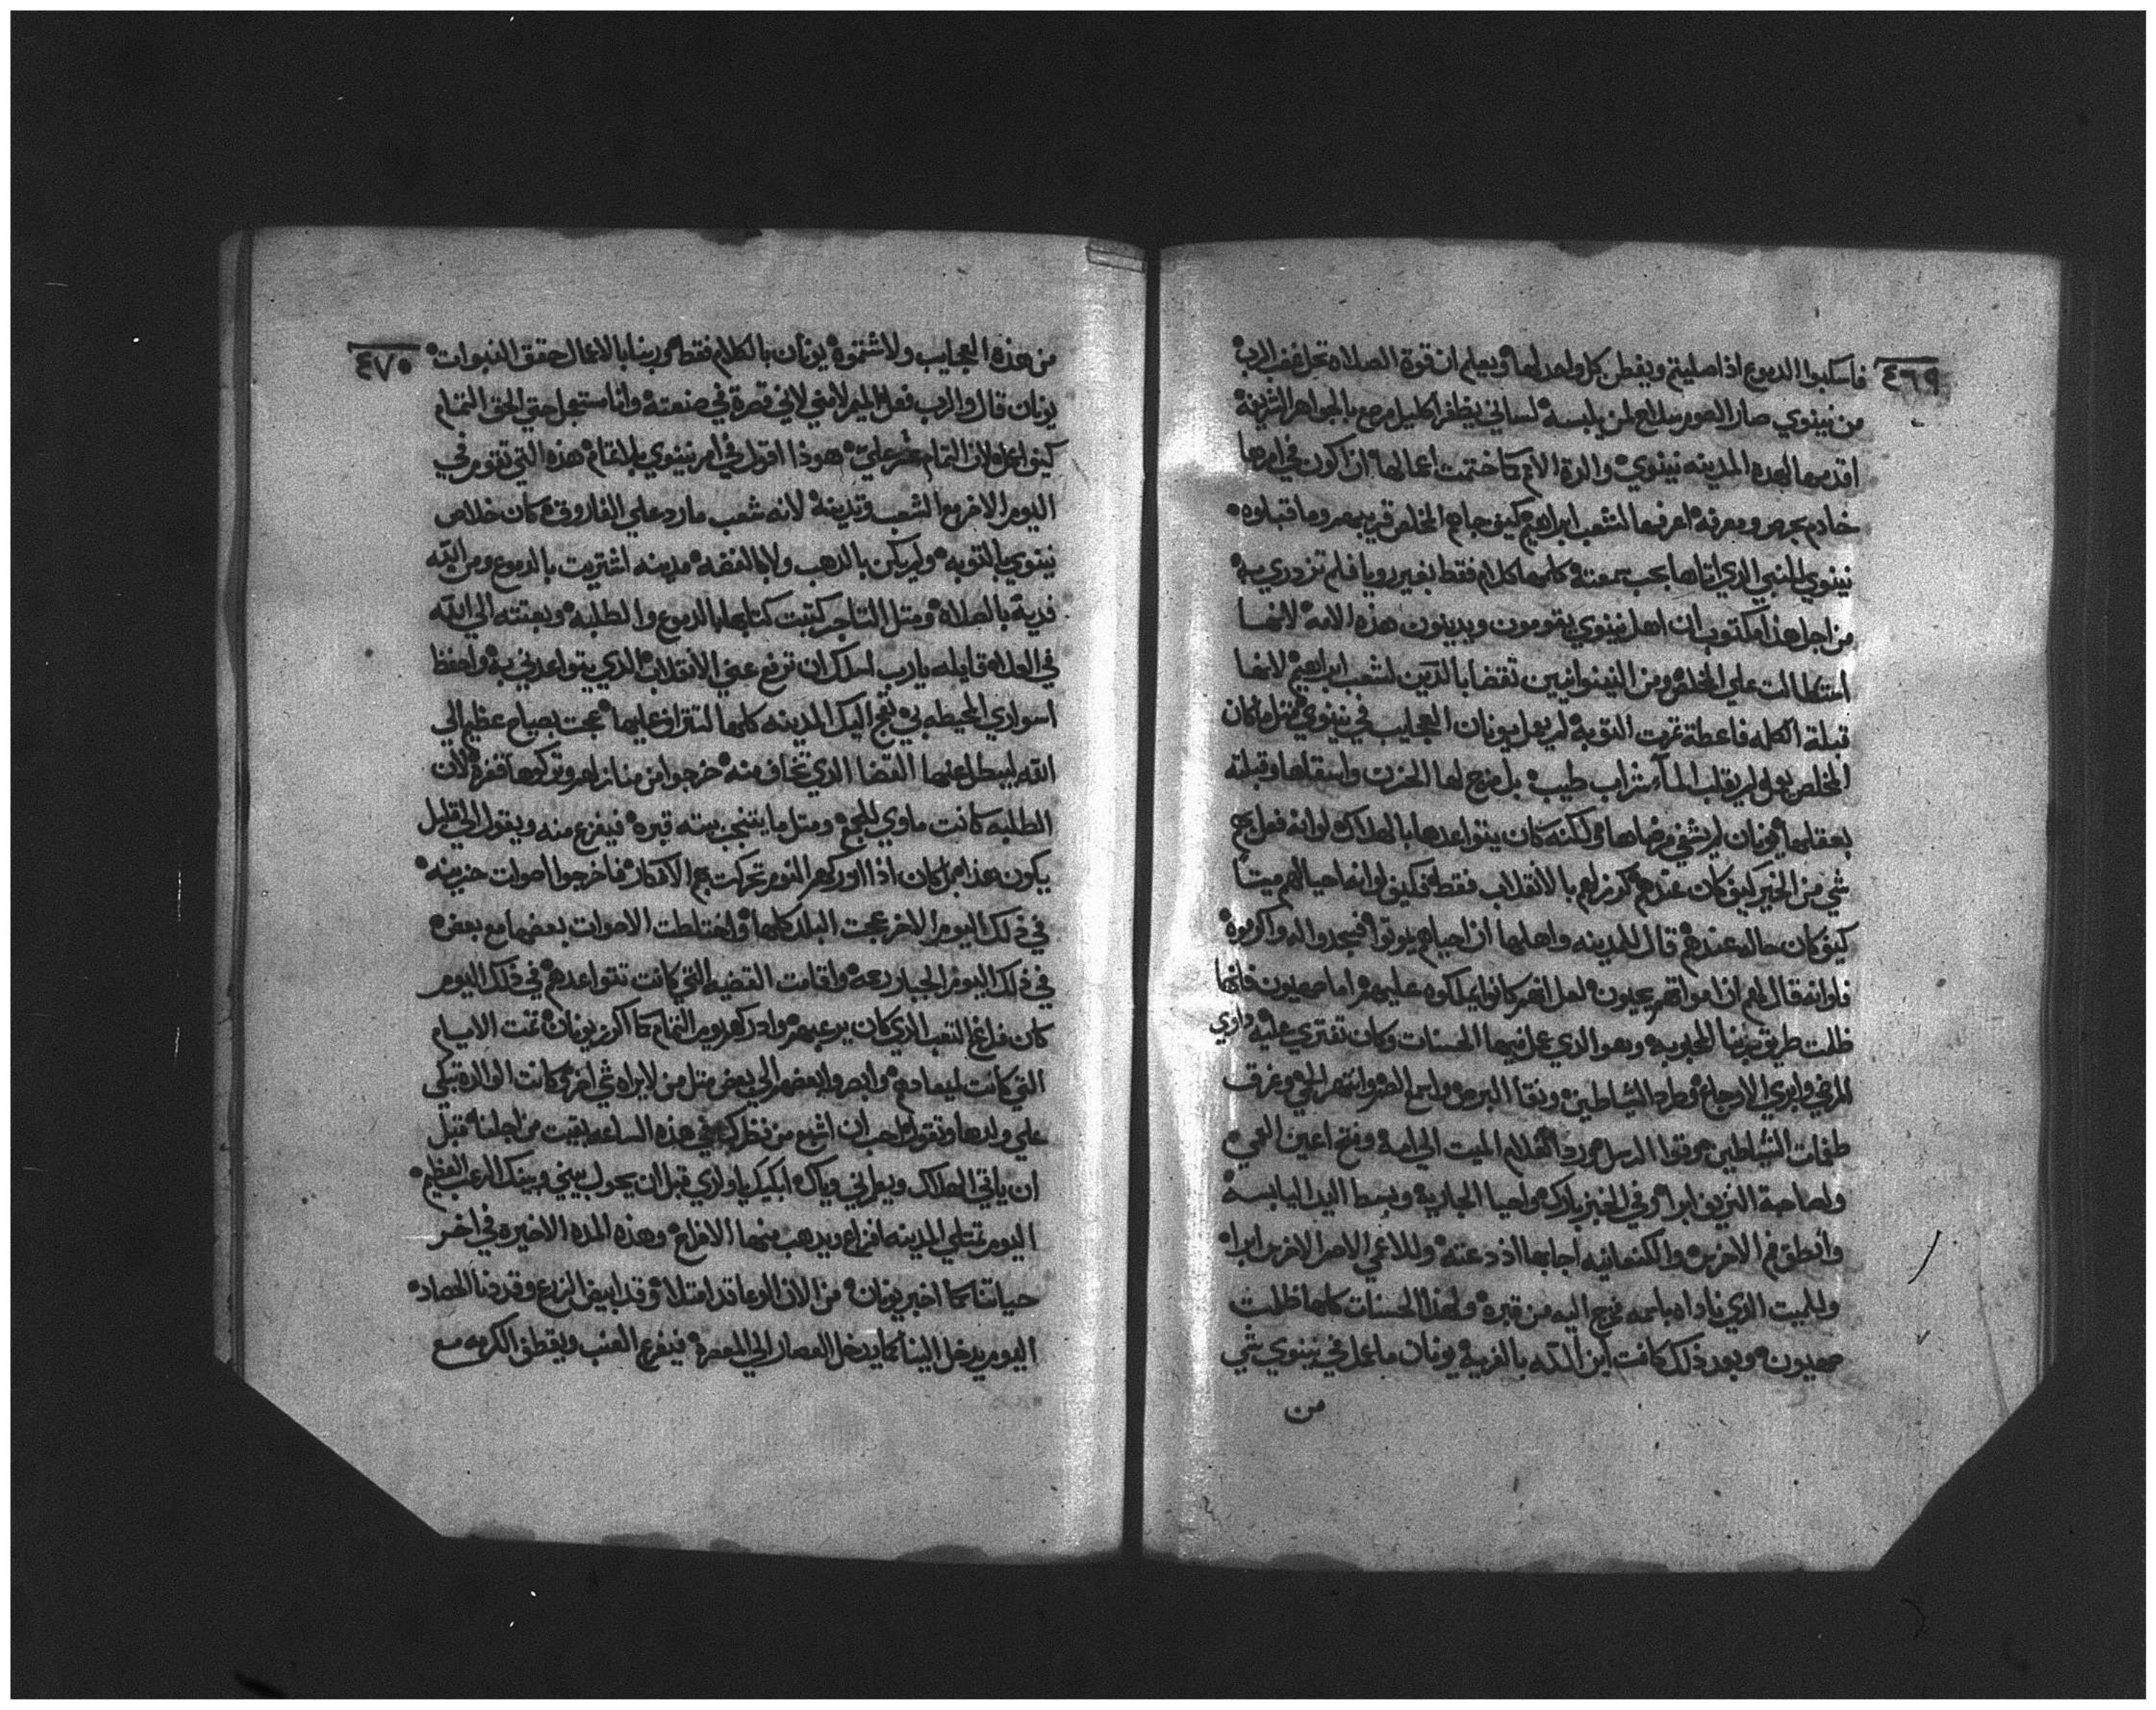 ٤٦٩
فاسكبوا الدموع اذا صليتم ويفطن كل واحد لها ويعلم ان قوة الصلاه تحل غضب الرب
من نينوي صار الصوم سلاح لمن يلبسه لساني يظفر اكليل مرصع بالجواهر الثمينه
اقدمها لهذه المدينه نينوي والدة الامم كما ختمت اعمالها ان اكون في امرها
خادم بحرص ومعرفه اعرفها لشعب ابراهيم كيف جاهم المخلص قريب منهم وما قبلوه
نينوي النبي الذي اتاها بحب سمعته كلمها كلام فقط بغير رويا فلم تزدري به
من اجل هذا مكتوب ان اهل نينوي يقومون ويدينون هذه الامه لانها
استطالت علي المخلص ومن النينوانيين تقضا بالدين لشعب ابراهيم لانها
قبلة الكلمه فاعطة ثمرت التوبه لم يعمل يونان العجايب في نينوي مثل ما كان
المخلص يعمل ولم يقلب المآء شراب طيب بل مزج لها الحزن واسقاها وقبلته
بعقلها يونان لم يشفي مرضاها ولكنه كان يتواعدها بالهلاك لو انه فعل بهم
شي من الخير كيف كان عندهم كرز لهم بالانقلاب فقط فكيف لو انه احيا لهم ميتاً
كيف كان حاله عندهم قال للمدينه واهلها ان احياهم يموتوا فسجدوا له واكرموه
فلو انه قال لهم ان امواتهم يعيون لعل انهم كانوا يملكوه عليهم اما صهيون فانها
ظلت طريق ربنا المحبوبه وهو الذي عمل فيها الحسنات وكان تفتري عليه داوي
المرضي وابري الاوجاع وطرد الشياطين ونقا البرص واسمع الصم وانتهر الحمي وغرق
طغمات الشياطين وقوا الرسل ورد الغلام الميت الي امه وفتح اعين العمي
ولصاحبة النزيف ابرا وفي الخبز بارك واحيا الجاريه وبسط اليد اليابسه
وانطق فم الاخرس والكنعانيه اجابها اذ دعته وللاعمي الاصم الاخرس ابراه
والميت الذي ناداه باسمه خرج اليه من قبره ولهذا الحسنات كلها ظلمت
صهيون وبعد ذلك كافت ابن الله بالفريه يونان ما عمل في نينوي شي
من
٤٧٠
من هذه العجايب ولا شتموه يونان بالكلام فقط وربنا بالاعمال حقق النبوات
يونان قال والرب فعل اليوم لامني لاني قصرة في صنعته وانا ستعجل حتي الحق التمام
كيف اعمله لان التمام عسر علي هوذا اقول في امر نينوي بلا تمام هذه التي تقوم في
اليوم الاخر مع الشعب وتدينه لانه شعب مارد علي الفاروق كان خلاص
نينوي بالتوبه ولم يكن بالذهب ولا بالفضه مدينه اشتريت بالدموع ومن الله
فدية بالصلاه ومثل التاجر كتبت كتابها بالدموع والطلبه وبعتته الي الله
في الصلاه قايله يارب اسلك ان ترفع عني الانقلاب الذي يتواعدني به واحفظ
اسواري المحيطه بي تعج اليك المدينه كلها لتتراف عليها عجت بصياح عظيم الي
الله ليبطل عنها القضا الذي تخاف منه خرجوا من منازلهم وتركوها قفره لان
الطلبه كانت ماوي للجمع ومثل ما ينتحب ميته قبره فيفزع منه ويقول الي قليل
يكون هذا بل كان اذا ادركهم النوم تحركت بهم الافكار فاخرجوا اصوات حزينه
في ذلك اليوم الاخر عجت البلد كلها واختلطت الاصوات بعضها مع بعض
في ذلك اليوم الجبار رعه واقامت القضيه التي كانت تتواعدهم في ذلك اليوم
كان فراغ التعب الذي كان يرعبهم وادركهم يوم التمام كما اكرز يونان تمت الايام
التي كانت لميعادهم وابصروا بعضهم الي بعض مثل من لا يراه شي اخر وكانت الوالده تبكي
علي ولدها وتقول احب ان اشبع من نظرك في هذه الساعه بقيت من اجلنا قبل
ان ياتي الهلاك ويعمني وياك ابكيك يا ولدي قبل ان يحول بيني وبينك الرعب العظيم
اليوم تمتلي المدينه افراع ويذهب منها الافراح وهذه المده الاخيره في اخر
حياتنا كما اخبر يونان من الان الوعا قد امتلا وقد ابيض الزرع وقد دنا الحصاد
اليوم يدخل الينا كما يدخل العصار الي المعصره فيفرغ العنب ويقطف الكرمه مع